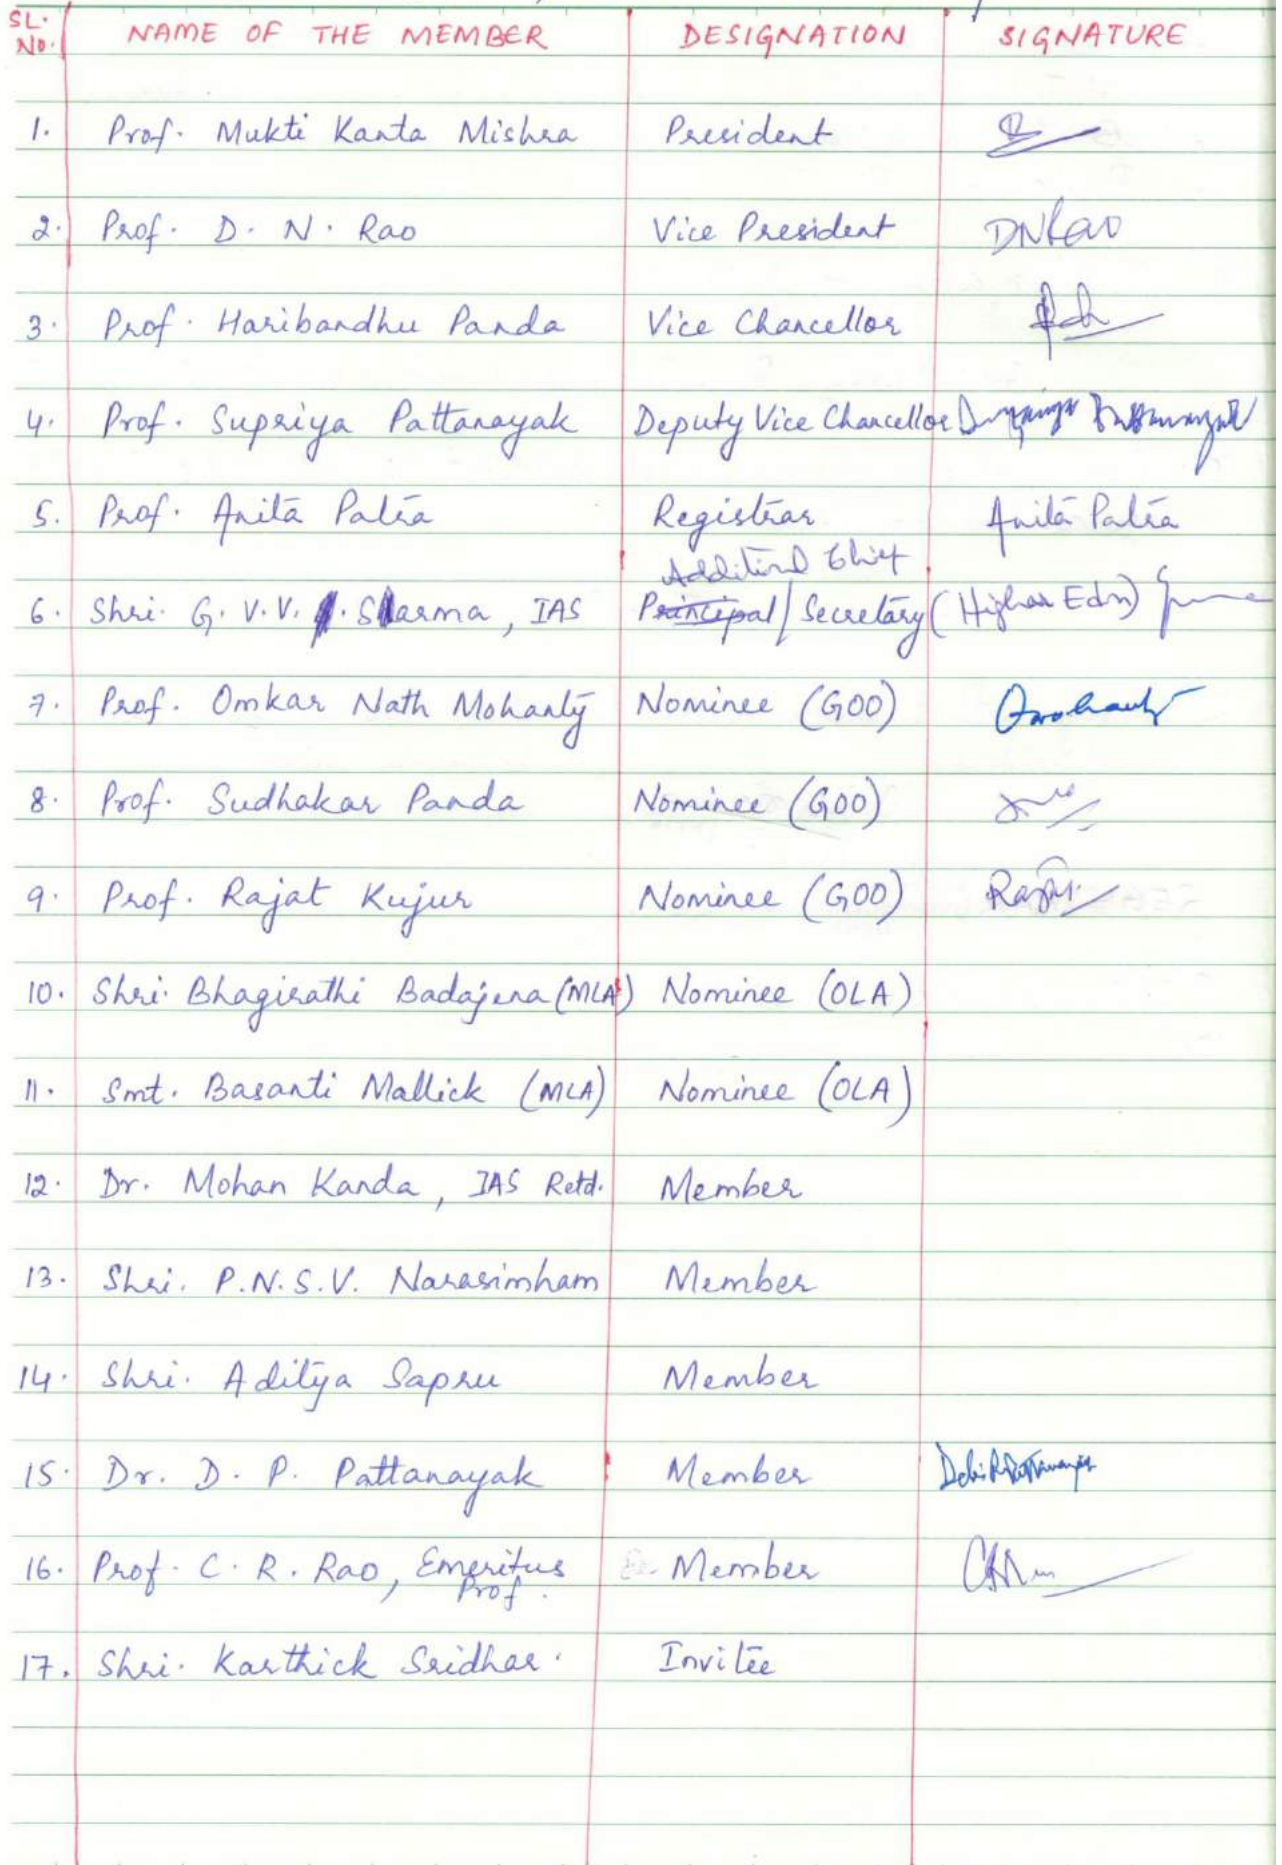 SL. No. NAME OF THE MEMBER DESIGNATION SIGNATURE
1. Prof. Mukti Kanta Mishra President
2. Prof. D. N. Rao Vice President DNRao
3. Prof. Haribandhu Panda Vice Chancellor
4. Prof. Supriya Pattanayak Deputy Vice Chancellor
5. Prof. Anita Patra Registrar Anita Patra
Additional Chief
6. Shri. G. V. V. Sharma, IAS Principal / Secretary (Higher Edn)
7. Prof. Omkar Nath Mohanty Nominee (GOO) Omohanty
8. Prof. Sudhakar Panda Nominee (GOO)
9. Prof. Rajat Kujur Nominee (GOO)
10. Shri. Bhagirathi Badajena (MLA) Nominee (OLA)
11. Smt. Basanti Mallick (MLA) Nominee (OLA)
12. Dr. Mohan Kanda, IAS Retd. Member
13. Shri. P.N.S.V. Narasimham Member
14. Shri. Aditya Sapru Member
15. Dr. D. P. Pattanayak Member
16. Prof. C. R. Rao, Emeritus Member
Prof.
17. Shri. Karthick Sridhar. Invitee